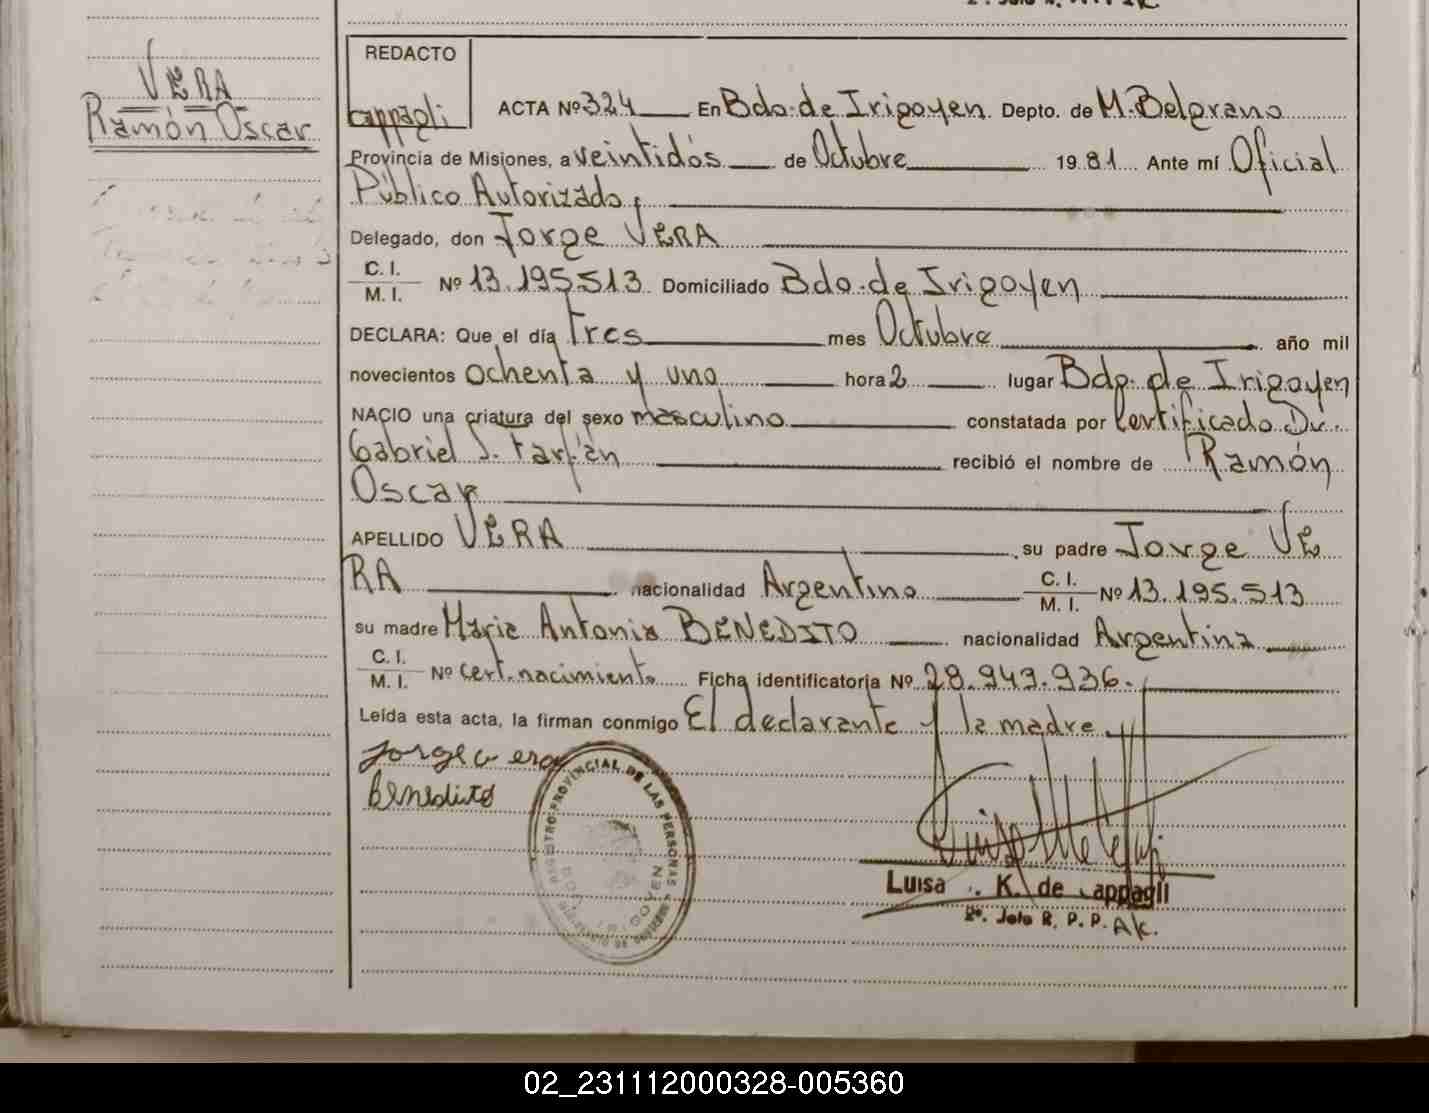 VERA
Ramón Oscar
REDACTO
Cappagli
ACTA Nº 324 En Bdo. de Irigoyen Depto. de M. Belgrano
Provincia de Misiones, a veintidós de Octubre 1981 Ante mí Oficial
Público Autorizado,
Delegado, don Jorge VERA
C. I.
M. I. Nº 13.195.513 Domiciliado Bdo. de Irigoyen
DECLARA: Que el día Tres mes Octubre año mil
novecientos ochenta y uno hora 2 lugar Bdo. de Irigoyen
NACIO una criatura del sexo masculino constatada por Certificado Dr.
Gabriel S. Farfán recibió el nombre de Ramón
Oscar
APELLIDO VERA su padre Jorge VE
RA nacionalidad Argentino C. I. M. I. Nº 13.195.513
su madre María Antonia BENEDITO nacionalidad Argentina
C. I.
M. I. Nº cert. nacimiento Ficha identificatoria Nº 28.949.936.
Leída esta acta, la firman conmigo El declarante y la madre
Jorge Vera
Benedito
REGISTRO PROVINCIAL DE LAS PERSONAS
IRIGOYEN
Luisa K. de Cappagli
2º. Jefe R. P. P. Ak.
02_231112000328-005360